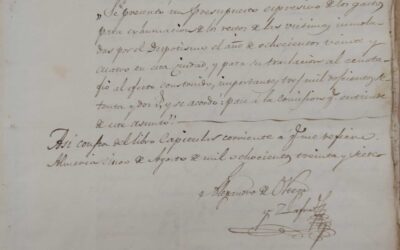 "Se presenta un presupuesto expresivo de los gastos
para exhumacion de los restos de las victimas inmola-
das por el despotismo el año de ochocientos veinte y
cuatro en esta ciudad, y para su traslacion al cenota-
fio al efecto construido, importante tres mil doscientos
y dos y se acordó: pase á la comision qe entiende
de este asunto"
Asi consta del libro Capitular corriente a qe me refiero
Almeria cinco de Agosto de mil ochocientos treinta y siete